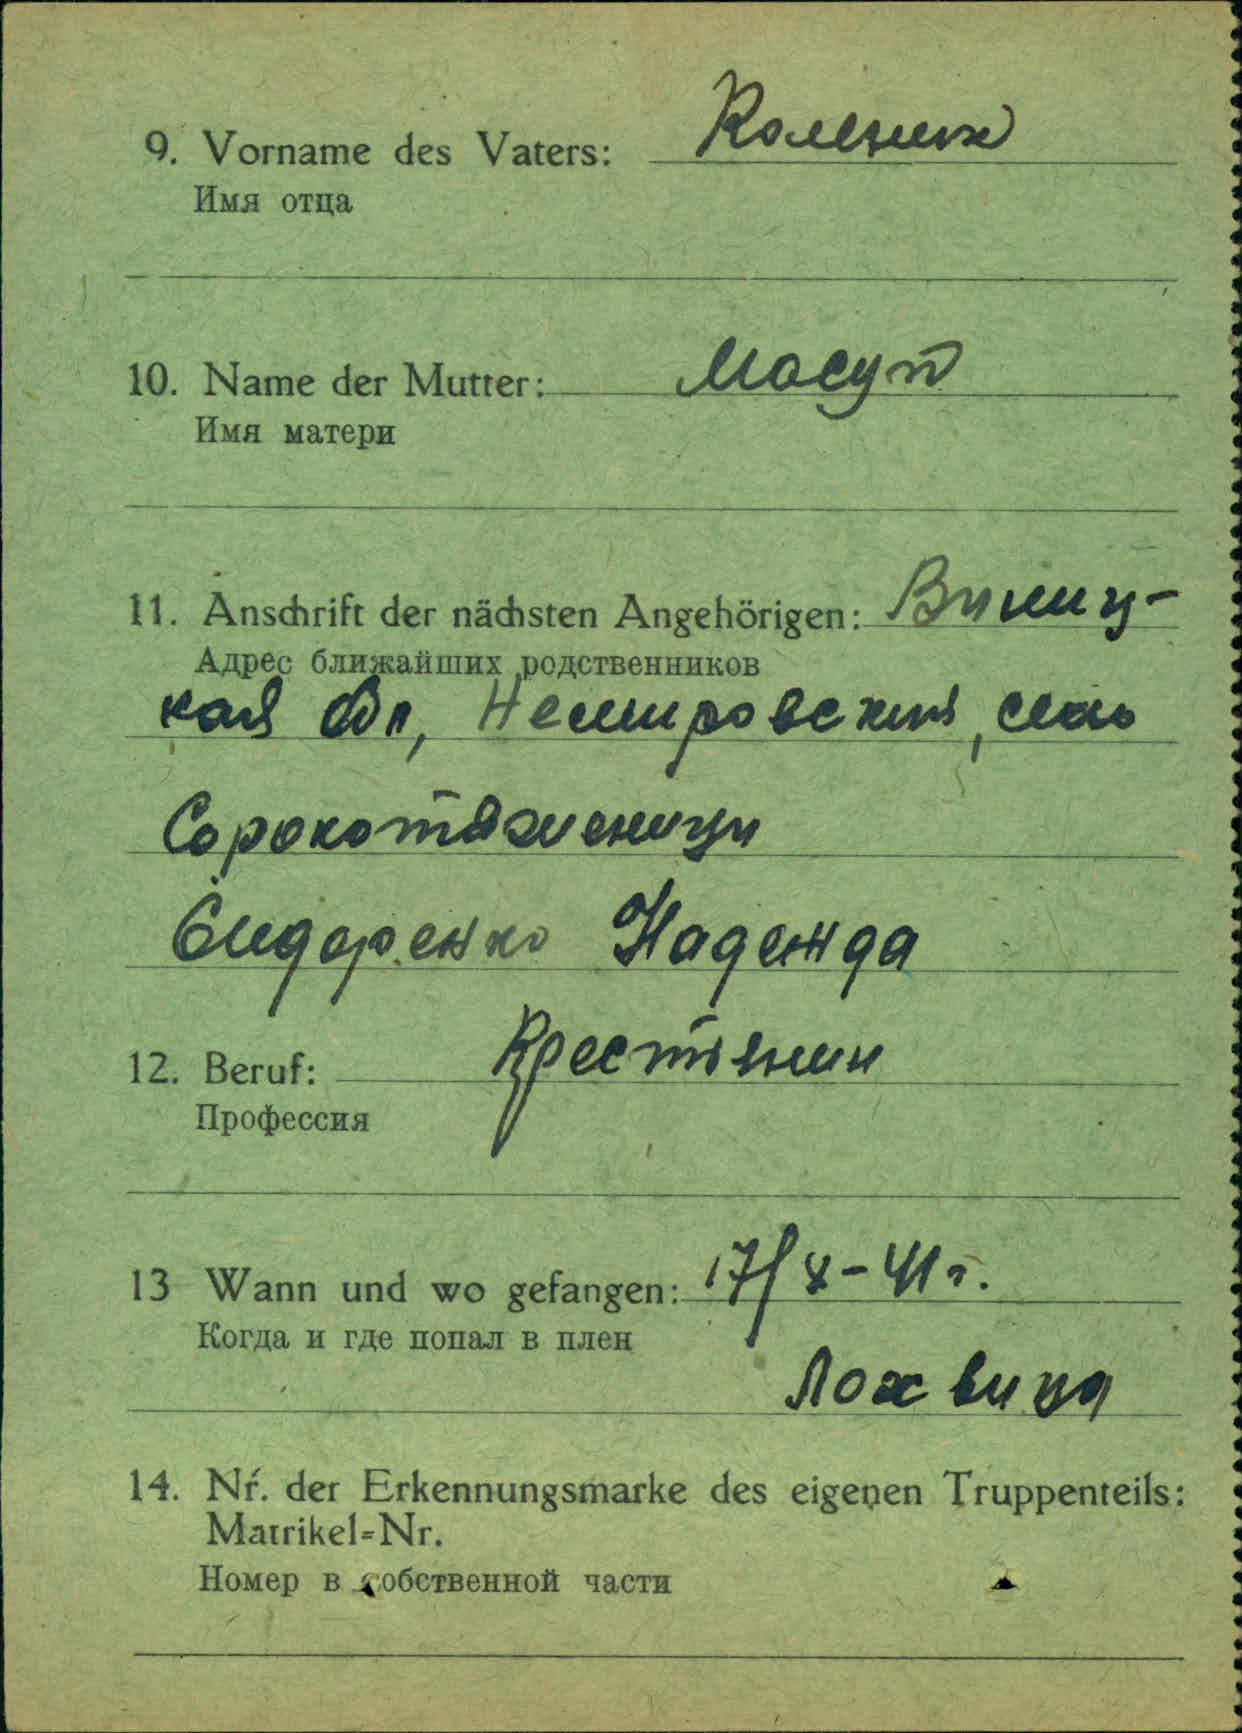 9. Vorname des Vaters:
Имя отца
10. Name der Mutter: Мосул
Имя матери
11. Anschrift der nächsten Angehörigen: Виниц-
Адрес ближайших родственников
кая Обл, Немировский, село
Сорокотяженци
Сидоренко Надежда
12. Beruf: Крестянин
Профессия
13 Wann und wo gefangen: 17/X-41г.
Когда и где попал в плен
Лохвица
14. Nr. der Erkennungsmarke des eigenen Truppenteils:
Matrikel=Nr.
Номер в собственной части